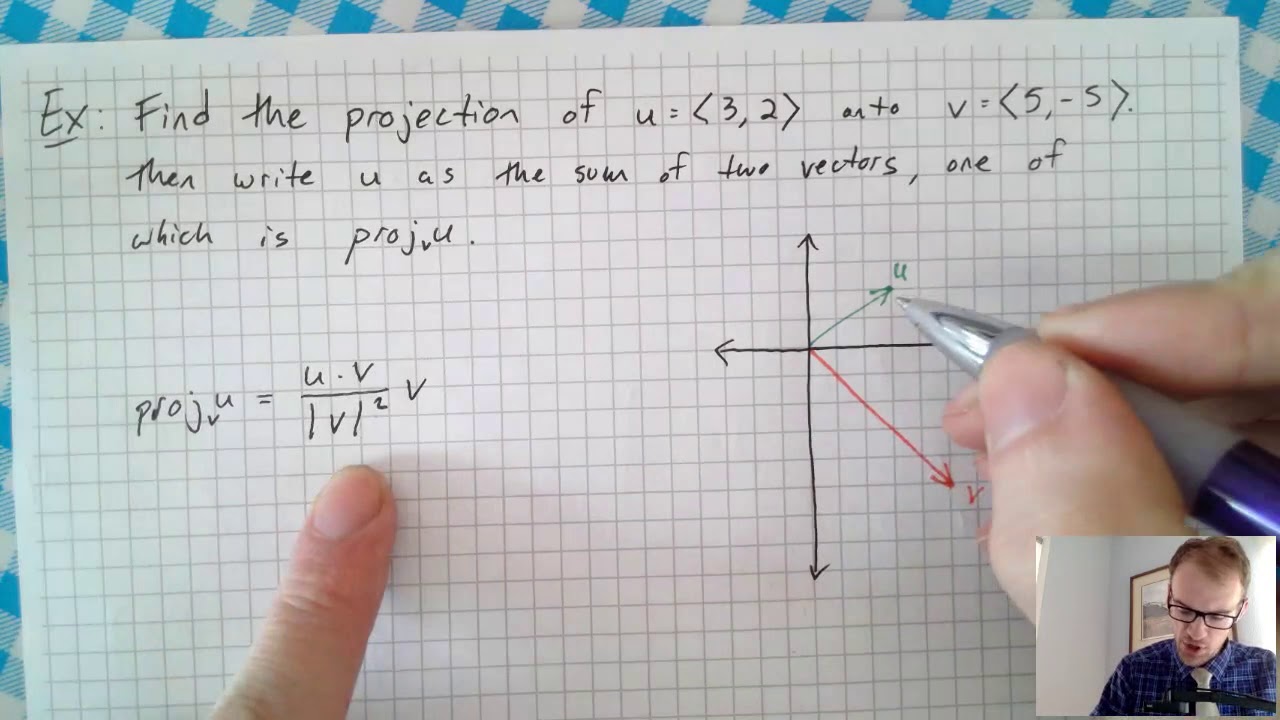 Ex: Find the projection of u = ⟨3, 2⟩ onto v = ⟨5, -5⟩.
then write u as the sum of two vectors, one of
which is projᵥu.
u
projᵥu = u · v / |v|² v
v